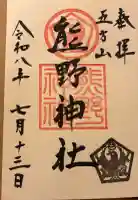 奉拝
五方山
熊野神社
令和八年
七月十三日